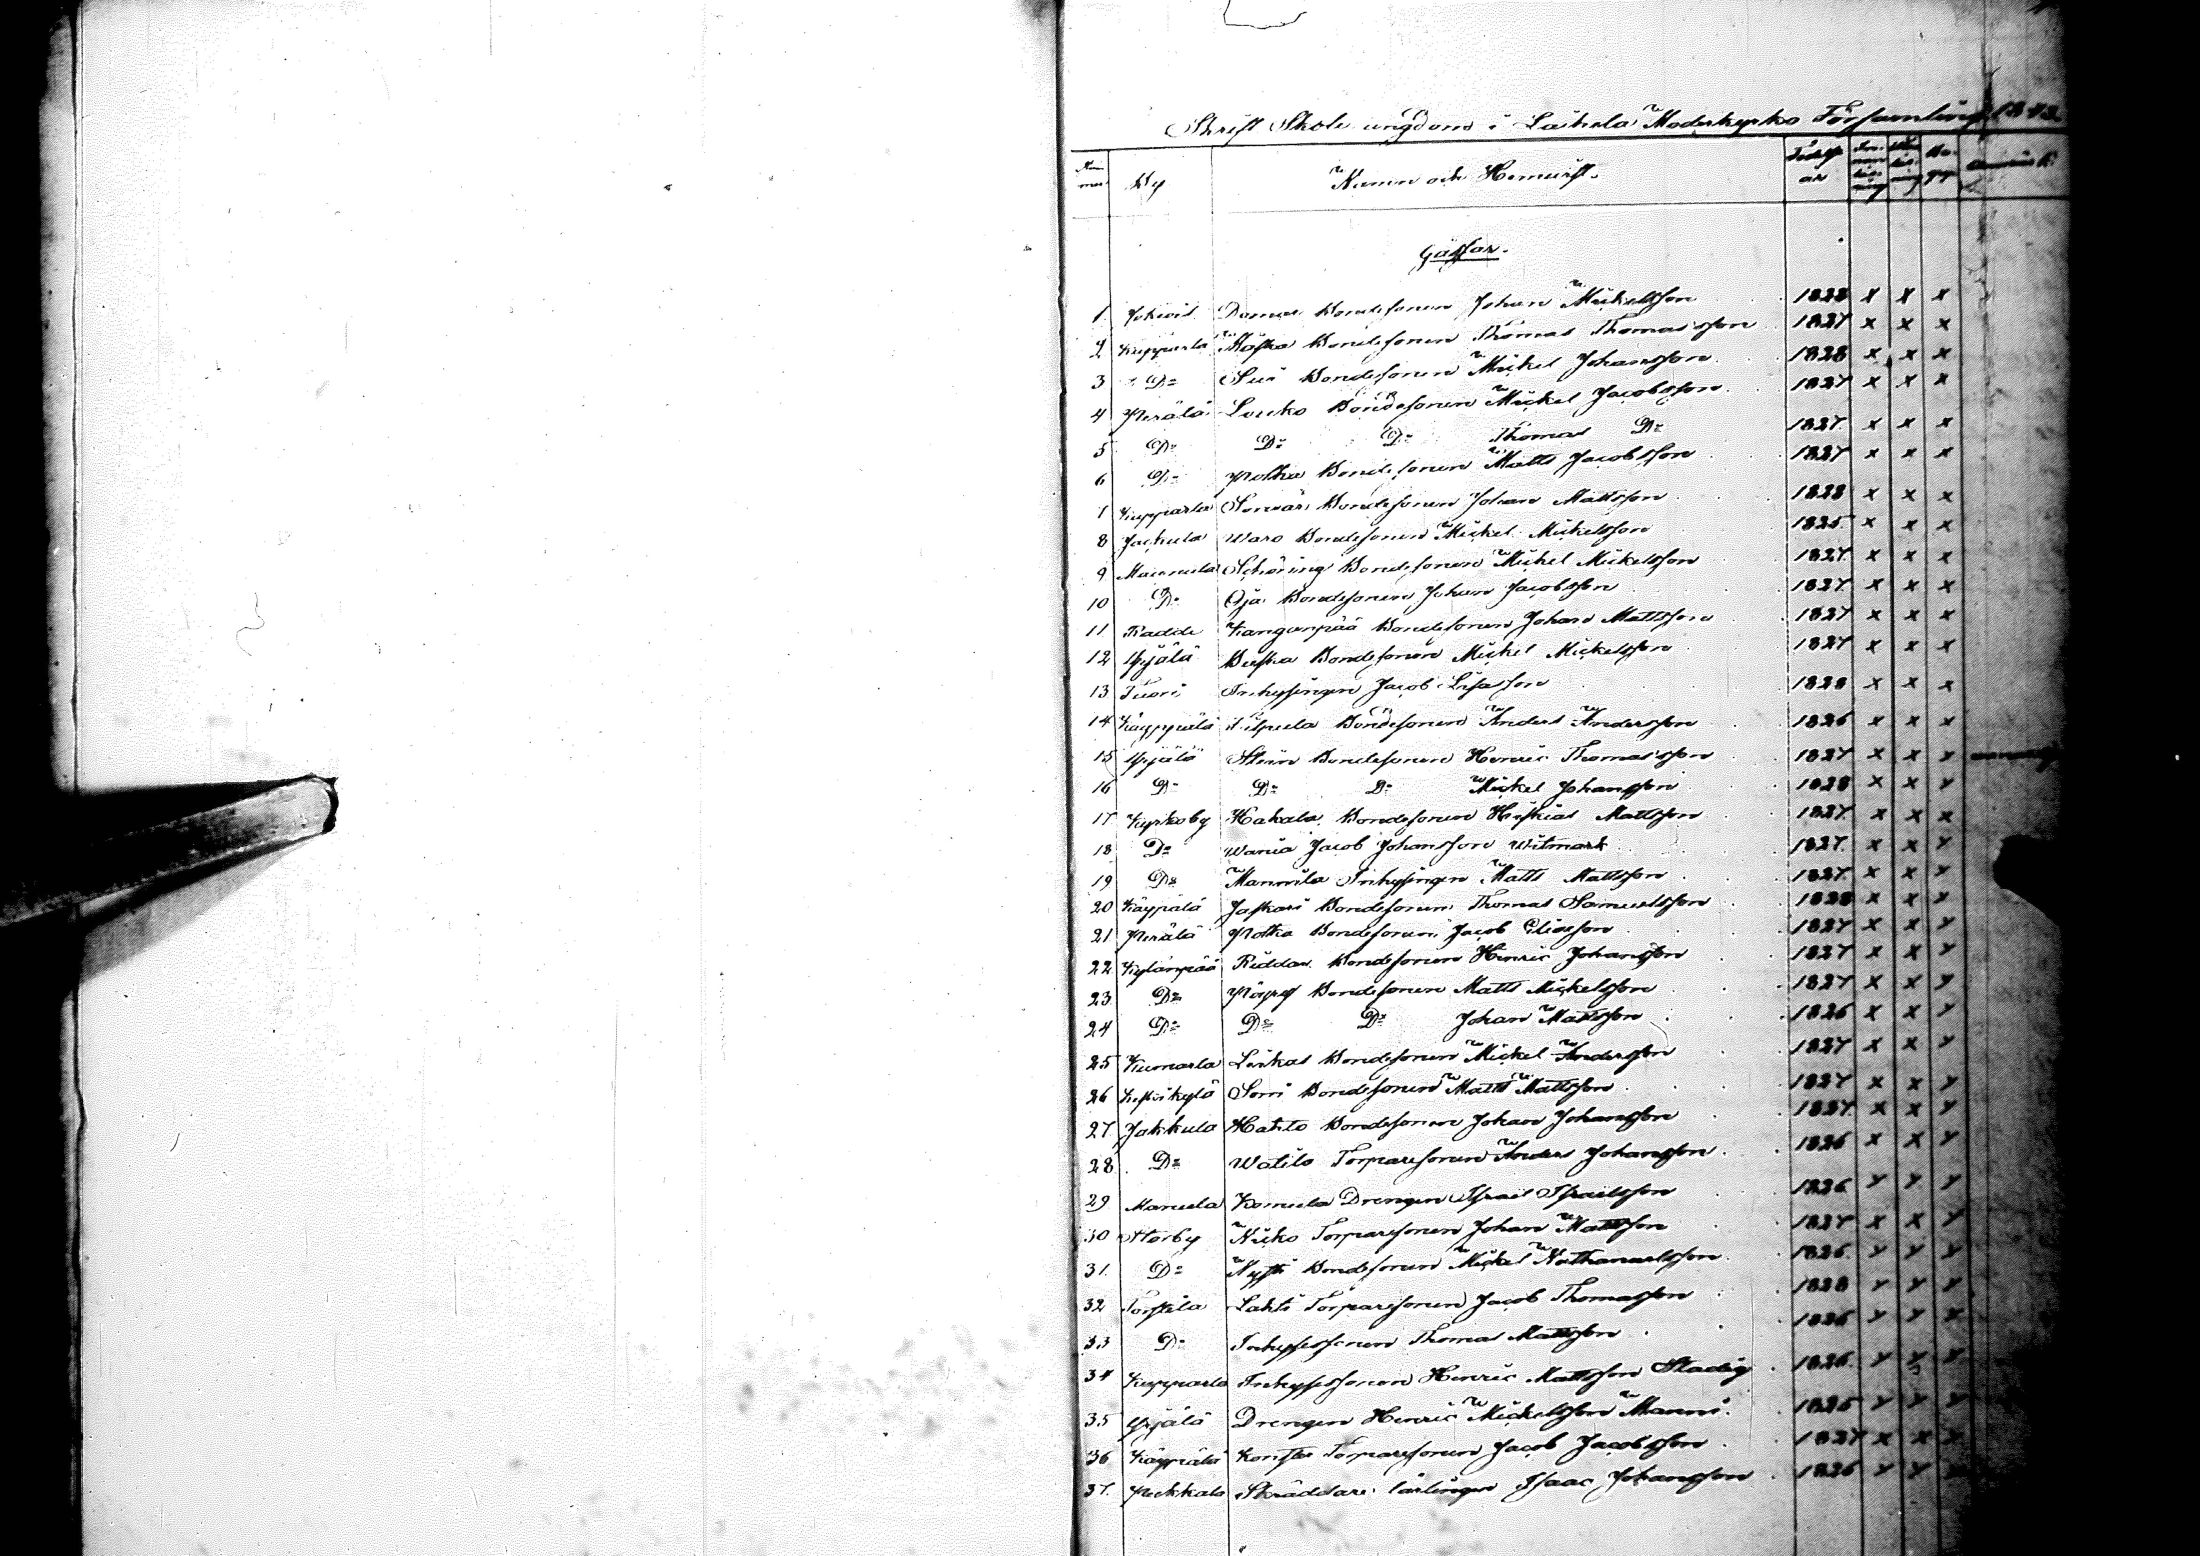 Skrift Skole ungdom i Laihela Moderkyrko Församling 1843
Nummer By Namn och Hemvist. Födelse år
Gåssar.
1 Jokivis Domar Bondesonen Johan Mickelsson 1828 x x x
2 Kupparla Bondesonen Thomas Thomasson 1827 x x x
3 Do Bondesonen Mickel Johansson 1828 x x x
4 Perälä Louko Bondesonen Mickel Jacobsson 1827 x x x
5 Do Do Do Thomas Do 1827 x x x
6 Do Potka Bondesonen Matts Jacobsson 1827 x x x
7 Kupparla Bondesonen Johan Mattsson 1828 x x x
8 Jackula Waro Bondesonen Mickel Mickelsson 1825 x x x
9 Mannula Schöring Bondesonen Mickel Mickelsson 1827 x x x
10 Do Oja Bondesonen Johan Jacobsson 1827 x x x
11 Radde Kanganpää Bondesonen Johan Mattsson 1827 x x x
12 Yrjälä Bondesonen Mickel Mickelsson 1827 x x x
13 Tuori Inhysingen Jacob Lisasson 1828 x x x
14 Käyppälä Bondesonen Anders Andersson 1826 x x x
15 Yrjälä Stein Bondesonen Henric Thomasson 1827 x x x
16 Do Do Do Mickel Johansson 1828 x x x
17 Kyrkoby Hakala Bondesonen Hiskias Mattsson 1827 x x x
18 Do Wania Jacob Johansson Witmark 1827 x x x
19 Do Mannila Inhysingen Matts Mattsson 1827 x x x
20 Käypälä Jaskari Bondesonen Thomas Samuelsson 1828 x x x
21 Perälä Potka Bondesonen Jacob Eliasson 1827 x x x
22 Kylänpää Riddar Bondesonen Henric Johansson 1827 x x x
23 Do Bondesonen Matts Mickelsson 1827 x x x
24 Do Do Do Johan Mattsson 1826 x x x
25 Kumarla Luikas Bondesonen Mickel Andersson 1827 x x x
26 Keskikylä Soni Bondesonen Matts Mattsson 1827 x x x
27 Jakkula Bondesonen Johan Johansson 1827 x x x
28 Do Watilo Torparesonen Anders Johansson 1826 x x x
29 Manula Komula Drengen Israel Israelsson 1826 x x x
30 Storby Niko Torparesonen Johan Mattsson 1827 x x x
31 Do Nysti Bondesonen Mickel Nathanaelsson 1826 x x x
32 Torstila Lahti Torparesonen Jacob Thomasson 1828 x x x
33 Do Inhysessonen Thomas Mattsson 1826 x x x
34 Kupparla Inhysessonen Henric Mattsson Stadig 1826 x x x
35 Yrjälä Drengen Henric Mickelsson Manni 1825 x x x
36 Käyppälä Torparesonen Jacob Jacobsson 1827 x x x
37 Pekkala Skräddare lärlingen Isaac Johansson 1826 x x x